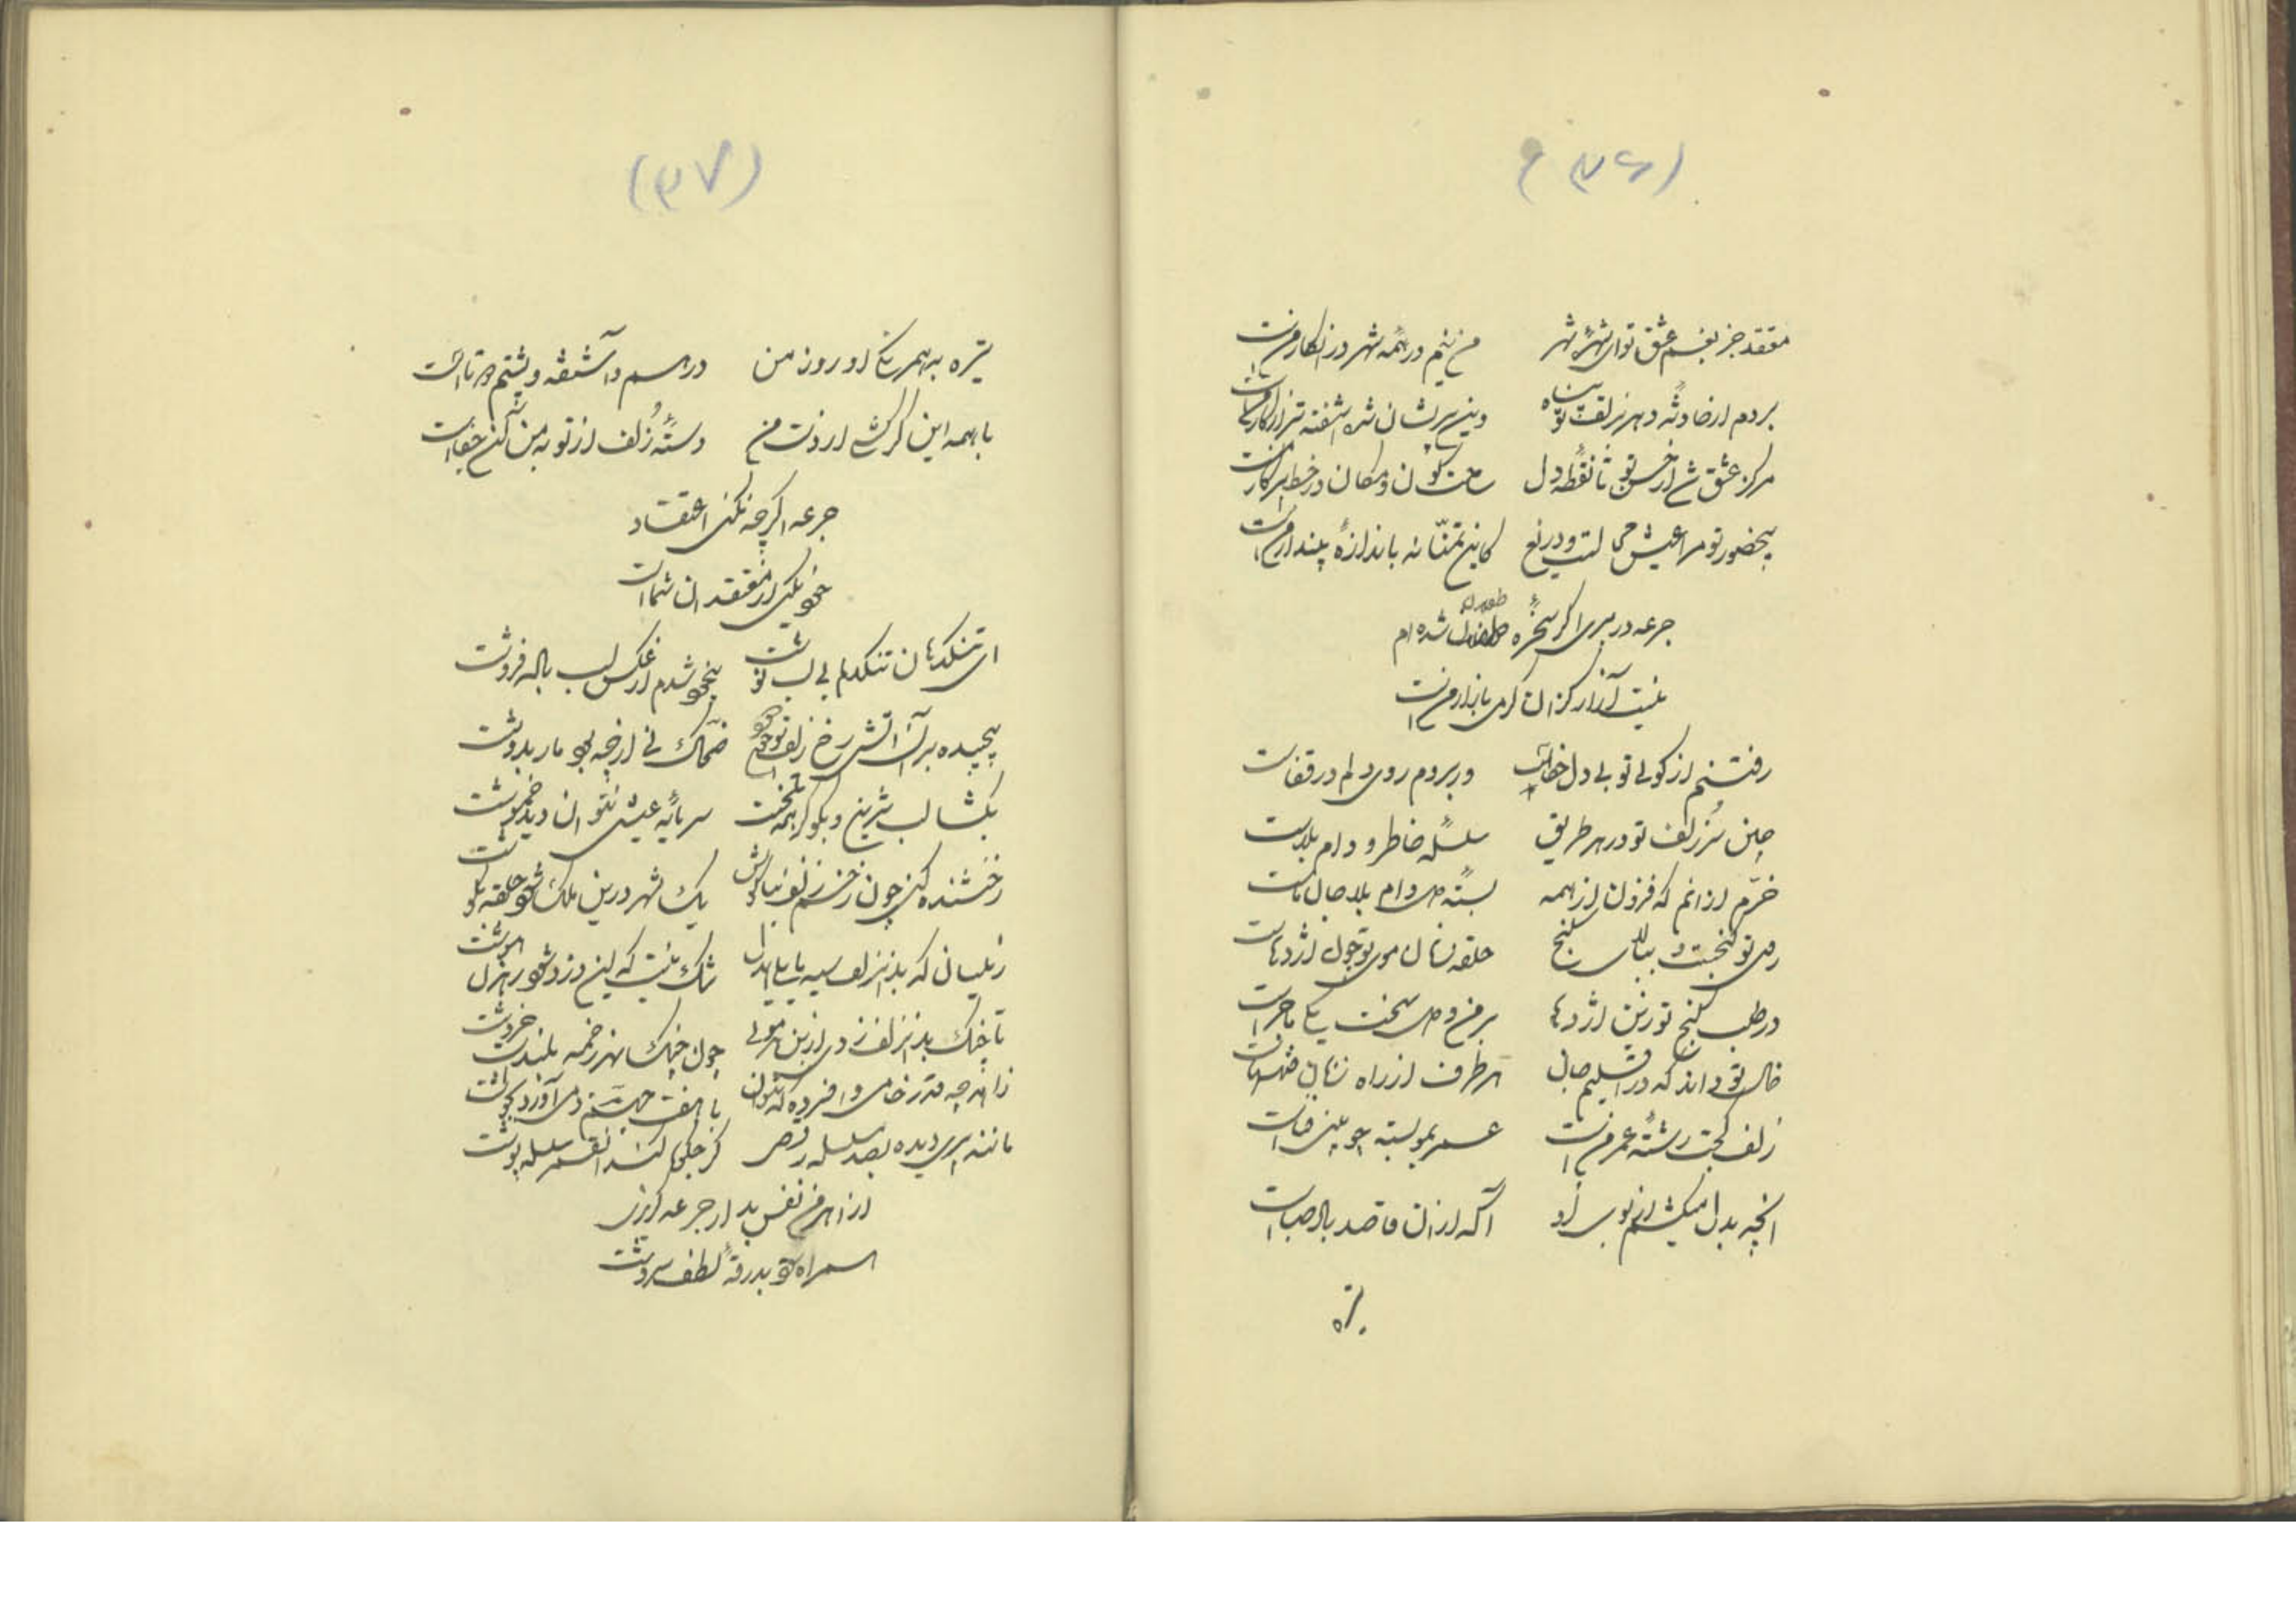 (۳۶)
معتقد جز بغم عشق تو ای شهرهٔ شهر من نیم در همه شهر در انکار منست
بردم از حادثهٔ دهر بزلف تو پناه وین پریشان شده آشفته‌تر از کار منست
مرکز عشق شد از حسن تو تا نقطهٔ دل ساحت کون و مکان در خط پرکار منست
بیحضور تو مرا عیش و دریغ کاین تمنا نه باندازهٔ پندار منست
جرعه در بری اگر سخرهٔ طفلان شده‌ام
نیست آزار کزان گرمی بازار منست
رفتنم از کوی تو بی دل خطاست ور بروم روی دلم در قفاست
چین سر زلف تو در هر طریق سلسلهٔ خاطر و دام بلاست
خرم ازانم که فزون از همه بستهٔ این دام بلا جان ماست
روی تو گنجست و ببالای گنج حلقه‌زنان موی تو چون اژدهاست
در طلب گنج تو زین اژدها بر من و دل سخت یکی ماجراست
خال تو داند که در اقلیم جان هر طرف از راه زنان فتنهاست
زلف کجت رشتهٔ عمر منست عمر بمو بسته چو بینی فناست
آنچه بدل میکشم از بوی او آگه ازان قاصد باد صباست
تیره
(۳۷)
تیره به همرنگی او روز من درهم و آشفته و پشتم دوتاست
با همه این گر کشی از دست من دستهٔ زلف از تو به من کین جفاست
جرعه اگرچه نکنی اعتقاد
خود یکی از معتقدان شماست
ای تنگدهان تنگدلم بی لب نوشت بیخود شدم از عکس لب باده فروشت
پیچیده بران آتش رخ زلف تو ضحاک نی از چه بود مار بدوشت
بگشا لب شیرین و بگو گر همه تلخست سرمایهٔ عیش نتوان دید خموشت
رخشنده کنی چون رخ زلف بناگوش یک شهر درین ملک شود حلقه بگوشت
زینسان که بدزد زلف سیه شک نیست که این دزد شود رهزن هوشت
تا چنگ بدان زلف زدی از بن هر موی چون چنگ بهر زخمه بلندست خروشت
زاهد چه قدر خامی و افسرده که نتوان با هفت جهنم دمی آورد بجوشت
مانند پری‌دیده بصد سلسله رقص گر جلوه کند آن قمر سلسله‌پوشت
از اهرمن نفس بد ار جرعه گریزی
همراه شود بدرقهٔ لطف سروشت